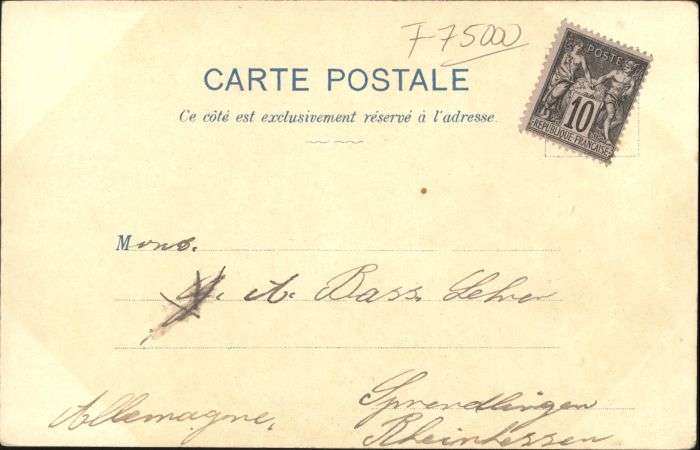 F 75000
CARTE POSTALE
POSTES
10
REPUBLIQUE FRANÇAISE
Ce côté est exclusivement réservé à l'adresse
Mons.
A. Bass. Lehrer
Sprendlingen
Allemagne,
Rheinhessen